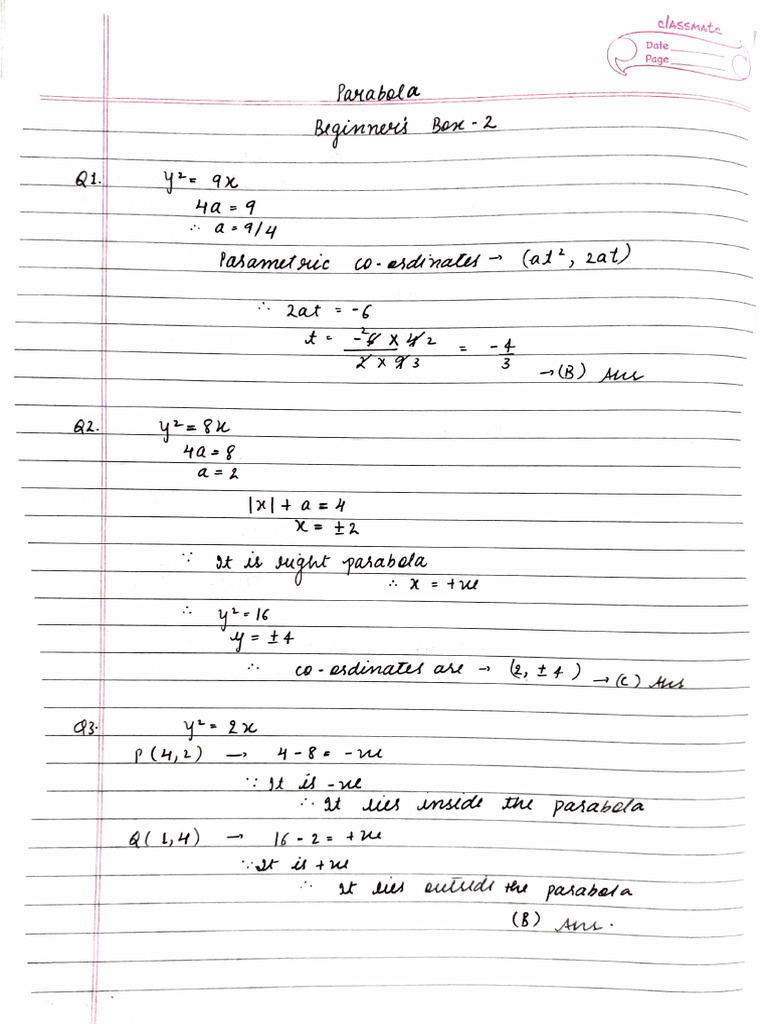 classmate
Date
Page
Parabola
Beginner's Box - 2
Q1. y² = 9x
4a = 9
∴ a = 9/4
Parametric co-ordinates → (at², 2at)
∴ 2at = -6
t = -6 × 4 2 / 2 × 9 3 = -4/3 → (B) Ans
Q2. y² = 8x
4a = 8
a = 2
|x| + a = 4
x = ±2
∵ It is right parabola
∴ x = +ve
∴ y² = 16
y = ±4
∴ co-ordinates are → (2, ±4) → (C) Ans
Q3. y² = 2x
P(4,2) → 4 - 8 = -ve
∵ It is -ve
∴ It lies inside the parabola
Q(1,4) → 16 - 2 = +ve
∵ It is +ve
∴ It lies outside the parabola
(B) Ans.